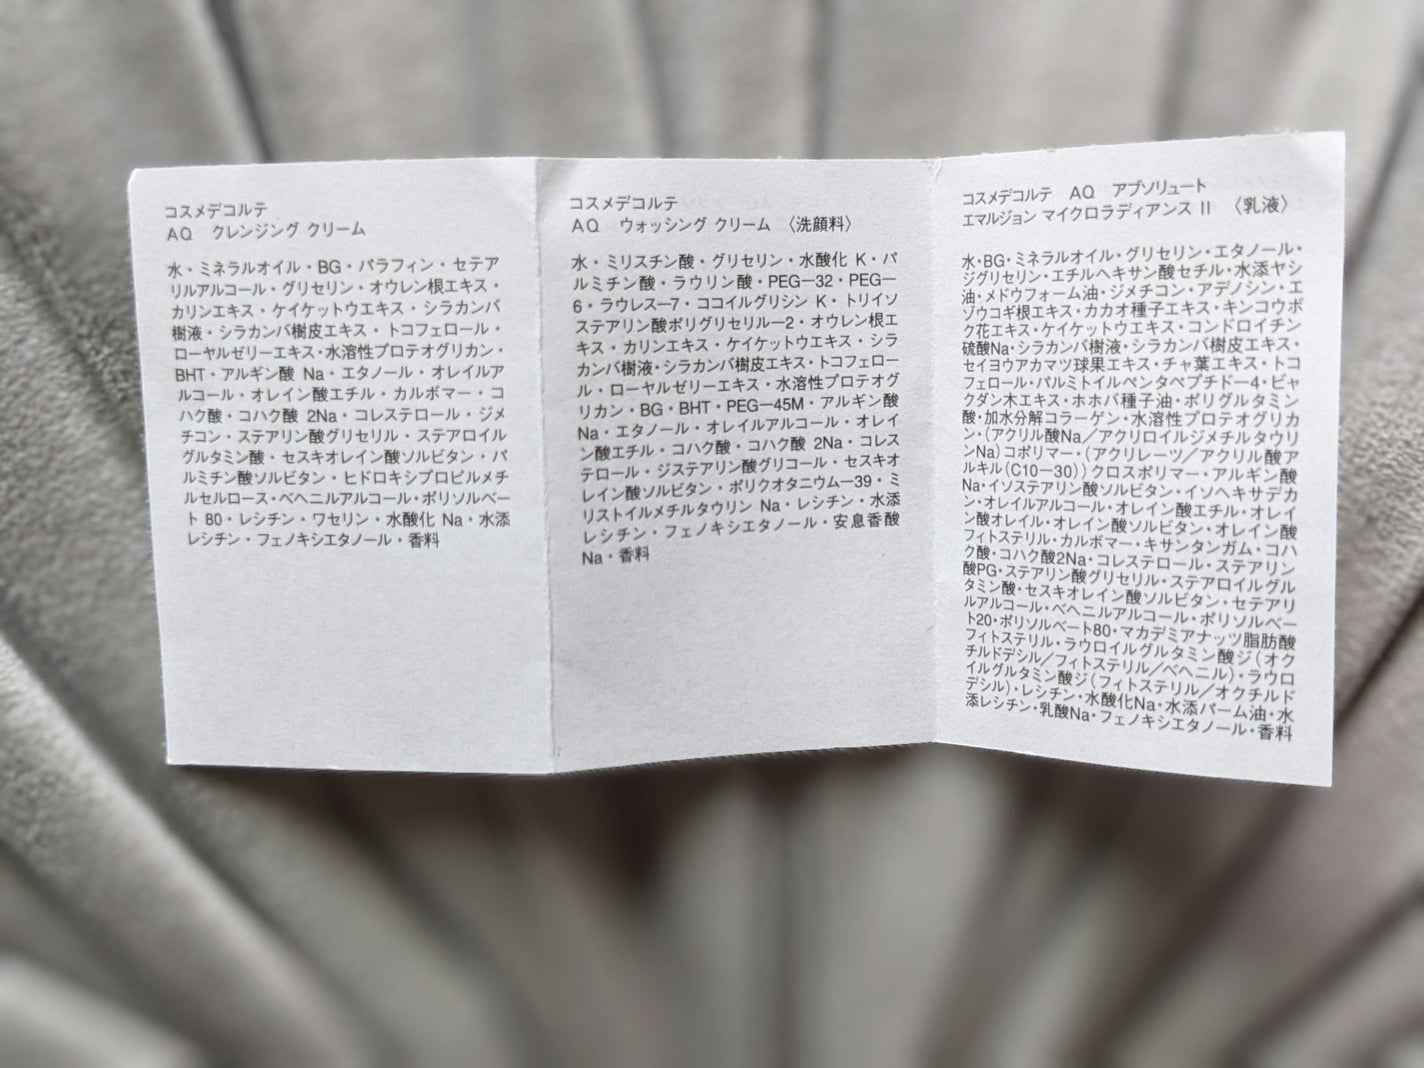 コスメデコルテ
AQ クレンジング クリーム
水・ミネラルオイル・BG・パラフィン・セテア
リルアルコール・グリセリン・オウレン根エキス・
カリンエキス・ケイケットウエキス・シラカンバ
樹液・シラカンバ樹皮エキス・トコフェロール・
ローヤルゼリーエキス・水溶性プロテオグリカン・
BHT・アルギン酸 Na・エタノール・オレイルア
ルコール・オレイン酸エチル・カルボマー・コ
ハク酸・コハク酸 2Na・コレステロール・ジメ
チコン・ステアリン酸グリセリル・ステアロイル
グルタミン酸・セスキオレイン酸ソルビタン・パ
ルミチン酸ソルビタン・ヒドロキシプロピルメチ
ルセルロース・ベヘニルアルコール・ポリソルベー
ト 80・レシチン・ワセリン・水酸化 Na・水添
レシチン・フェノキシエタノール・香料
コスメデコルテ
AQ ウォッシング クリーム 〈洗顔料〉
水・ミリスチン酸・グリセリン・水酸化 K・パ
ルミチン酸・ラウリン酸・PEG－32・PEG－
6・ラウレス－7・ココイルグリシン K・トリイソ
ステアリン酸ポリグリセリル－2・オウレン根エ
キス・カリンエキス・ケイケットウエキス・シラ
カンバ樹液・シラカンバ樹皮エキス・トコフェロー
ル・ローヤルゼリーエキス・水溶性プロテオグ
リカン・BG・BHT・PEG－45M・アルギン酸
Na・エタノール・オレイルアルコール・オレイ
ン酸エチル・コハク酸・コハク酸 2Na・コレス
テロール・ジステアリン酸グリコール・セスキオ
レイン酸ソルビタン・ポリクオタニウム－39・ミ
リストイルメチルタウリン Na・レシチン・水添
レシチン・フェノキシエタノール・安息香酸
Na・香料
コスメデコルテ AQ アブソリュート
エマルジョン マイクロラディアンス II 〈乳液〉
水・BG・ミネラルオイル・グリセリン・エタノール・
ジグリセリン・エチルヘキサン酸セチル・水添ヤシ
油・メドウフォーム油・ジメチコン・アデノシン・エ
ゾウコギ根エキス・カカオ種子エキス・キンコウボ
ク花エキス・ケイケットウエキス・コンドロイチン
硫酸Na・シラカンバ樹液・シラカンバ樹皮エキス・
セイヨウアカマツ球果エキス・チャ葉エキス・トコ
フェロール・パルミトイルペンタペプチド－4・ビャ
クダン木エキス・ホホバ種子油・ポリグルタミン
酸・加水分解コラーゲン・水溶性プロテオグリカ
ン・(アクリル酸Na／アクリロイルジメチルタウリ
ンNa)コポリマー・(アクリレーツ／アクリル酸ア
ルキル(C10－30))クロスポリマー・アルギン酸
Na・イソステアリン酸ソルビタン・イソヘキサデカ
ン・オレイルアルコール・オレイン酸エチル・オレイ
ン酸オレイル・オレイン酸ソルビタン・オレイン酸
フィトステリル・カルボマー・キサンタンガム・コハ
ク酸・コハク酸2Na・コレステロール・ステアリン
酸PG・ステアリン酸グリセリル・ステアロイルグル
タミン酸・セスキオレイン酸ソルビタン・セテアリ
ルアルコール・ベヘニルアルコール・ポリソルベー
ト20・ポリソルベート80・マカデミアナッツ脂肪酸
フィトステリル・ラウロイルグルタミン酸ジ(オク
チルドデシル／フィトステリル／ベヘニル)・ラウロ
イルグルタミン酸ジ(フィトステリル／オクチルド
デシル)・レシチン・水酸化Na・水添パーム油・水
添レシチン・乳酸Na・フェノキシエタノール・香料